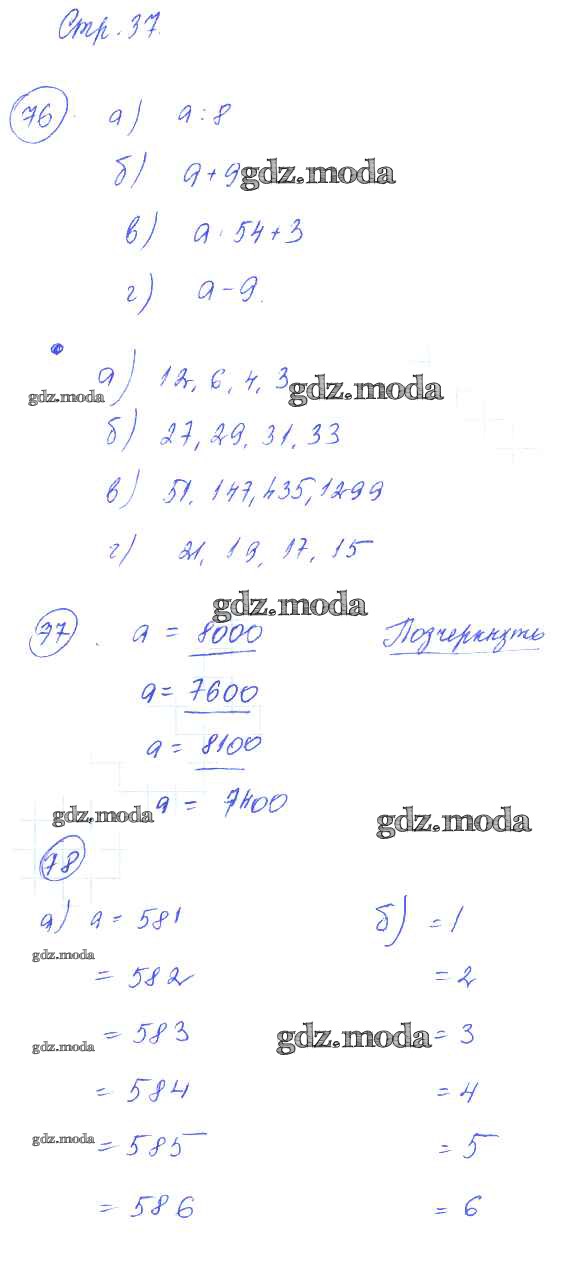 Стр. 37.
76. а) а : 8
б) а + 9 gdz.moda
в) а · 54 + 3
г) а - 9.
а) 12, 6, 4, 3 gdz.moda
gdz.moda
б) 27, 29, 31, 33
в) 51, 147, 435, 1299
г) 21, 19, 17, 15
gdz.moda
77. а = 8000 Подчеркнуть
а = 7600
а = 8100
а = 7400
gdz.moda gdz.moda
78
а) а = 581 б) = 1
gdz.moda
= 582 = 2
= 583 gdz.moda = 3
gdz.moda
= 584 = 4
gdz.moda = 585 = 5
= 586 = 6